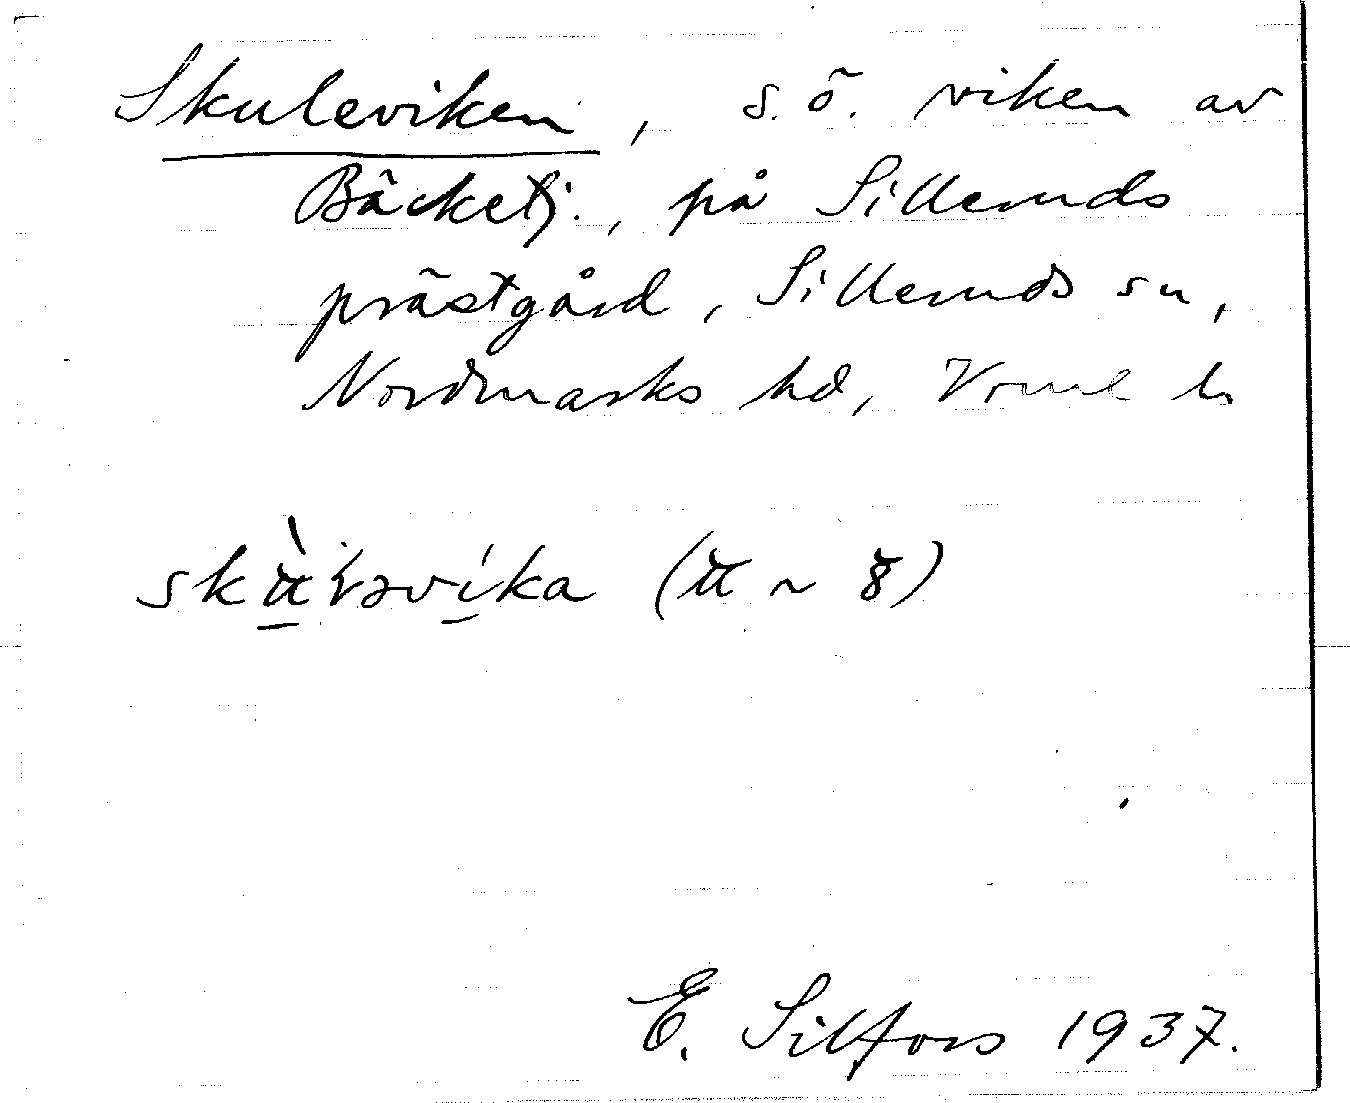 Skuleviken, s.ö. viken av
Bäcketj., på Silleruds
prästgård, Silleruds sn,
Nordmarks hd, Vrml l.
(ɯ ~ 8)
E. Silfors 1937.